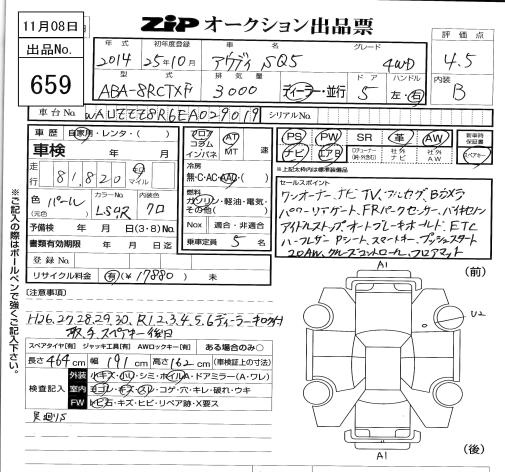 11月08日
ZIP オークション出品票
出品No.
659
年式 初年度登録 車名 グレード 評価点
2014 25年10月 アウディ SQ5 4WD 4.5
型式 排気量 ドア ハンドル 内装
ABA-8RCTXF 3000 ディーラー・並行 5 左・右 B
車台No. WAUZZZ8R6EA029019 シリアルNo.
車歴 自家用・レンタ・( ) フロア コラム インパネ AT MT 速
PS PW SR 革 AW 新車時保証書
ナビ エアB 社外ナビ 社外AW
車検 年 月
※上記太枠内は標準装備品
走行 81,820 キロ マイル
冷房 無・C・AC・AAC・( )
セールスポイント
ワンオーナー、ナビTV、フルセグ、Bカメラ
燃料 ガソリン・軽油・電気・その他( )
パワーリアゲート、FRパークセンサー、バイキセノン
色 パール (元色) カラーNo. LS9R 内装色 クロ
アイドルストップ、オートブレーキホールド、ETC
Nox 適合・非適合
予備検 年 月 日(3・8)No.
ハーフレザーPシート、スマートキー、プッシュスタート
書類有効期限 年 月 日迄 乗車定員 5 名
20AW、クルーズコントロール、フロアマット
登録No.
リサイクル料金 有( ¥17880 ) 未
(前)
[注意事項]
A1
H26.27.28.29.30.R1.2.3.4.5.6ディーラーキロク付
取手スペアキー後日
U2
スペアタイヤ[有] ジャッキ工具[有] AWロックキー[有] ある場合のみ○
長さ 464 cm 幅 191 cm 高さ 162 cm (車検証上の寸法)
検査記入
外装 小キズ・ハリ・シミ・ホイルA・ドアミラー(A・ワレ)
室内 ヨゴレ・キズ・スレ・コゲ・穴・キレ・破れ・ウキ
FW トビ石・キズ・ヒビ・リペア跡・X要ス
足廻りS
A1
(後)
※ご記入の際はボールペンで強くご記入下さい。